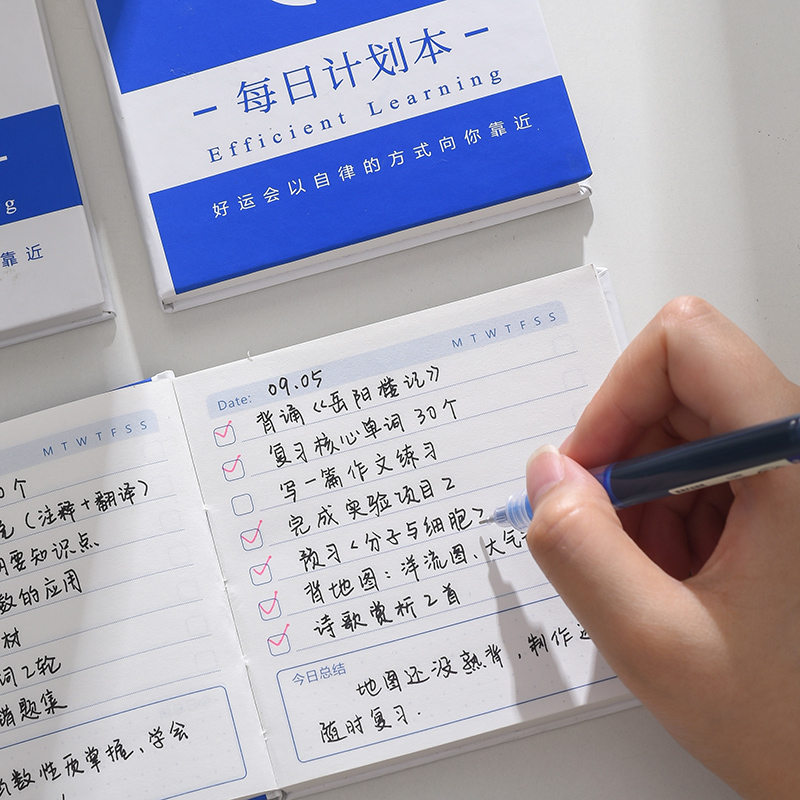 每日计划本
Efficient Learning
好运会以自律的方式向你靠近
g
靠近
M T W T F S S
0个
(注释+翻译)
要知识点
数的应用
材
词2轮
错题集
数性质掌握、学会
M T W T F S S
Date: 09.05
背诵《岳阳楼记》
复习核心单词 30个
写一篇作文练习
完成实验项目2
预习<分子与细胞>
背地图:洋流图、大气
诗歌赏析2首
今日总结
地图还没熟背,制作
随时复习.